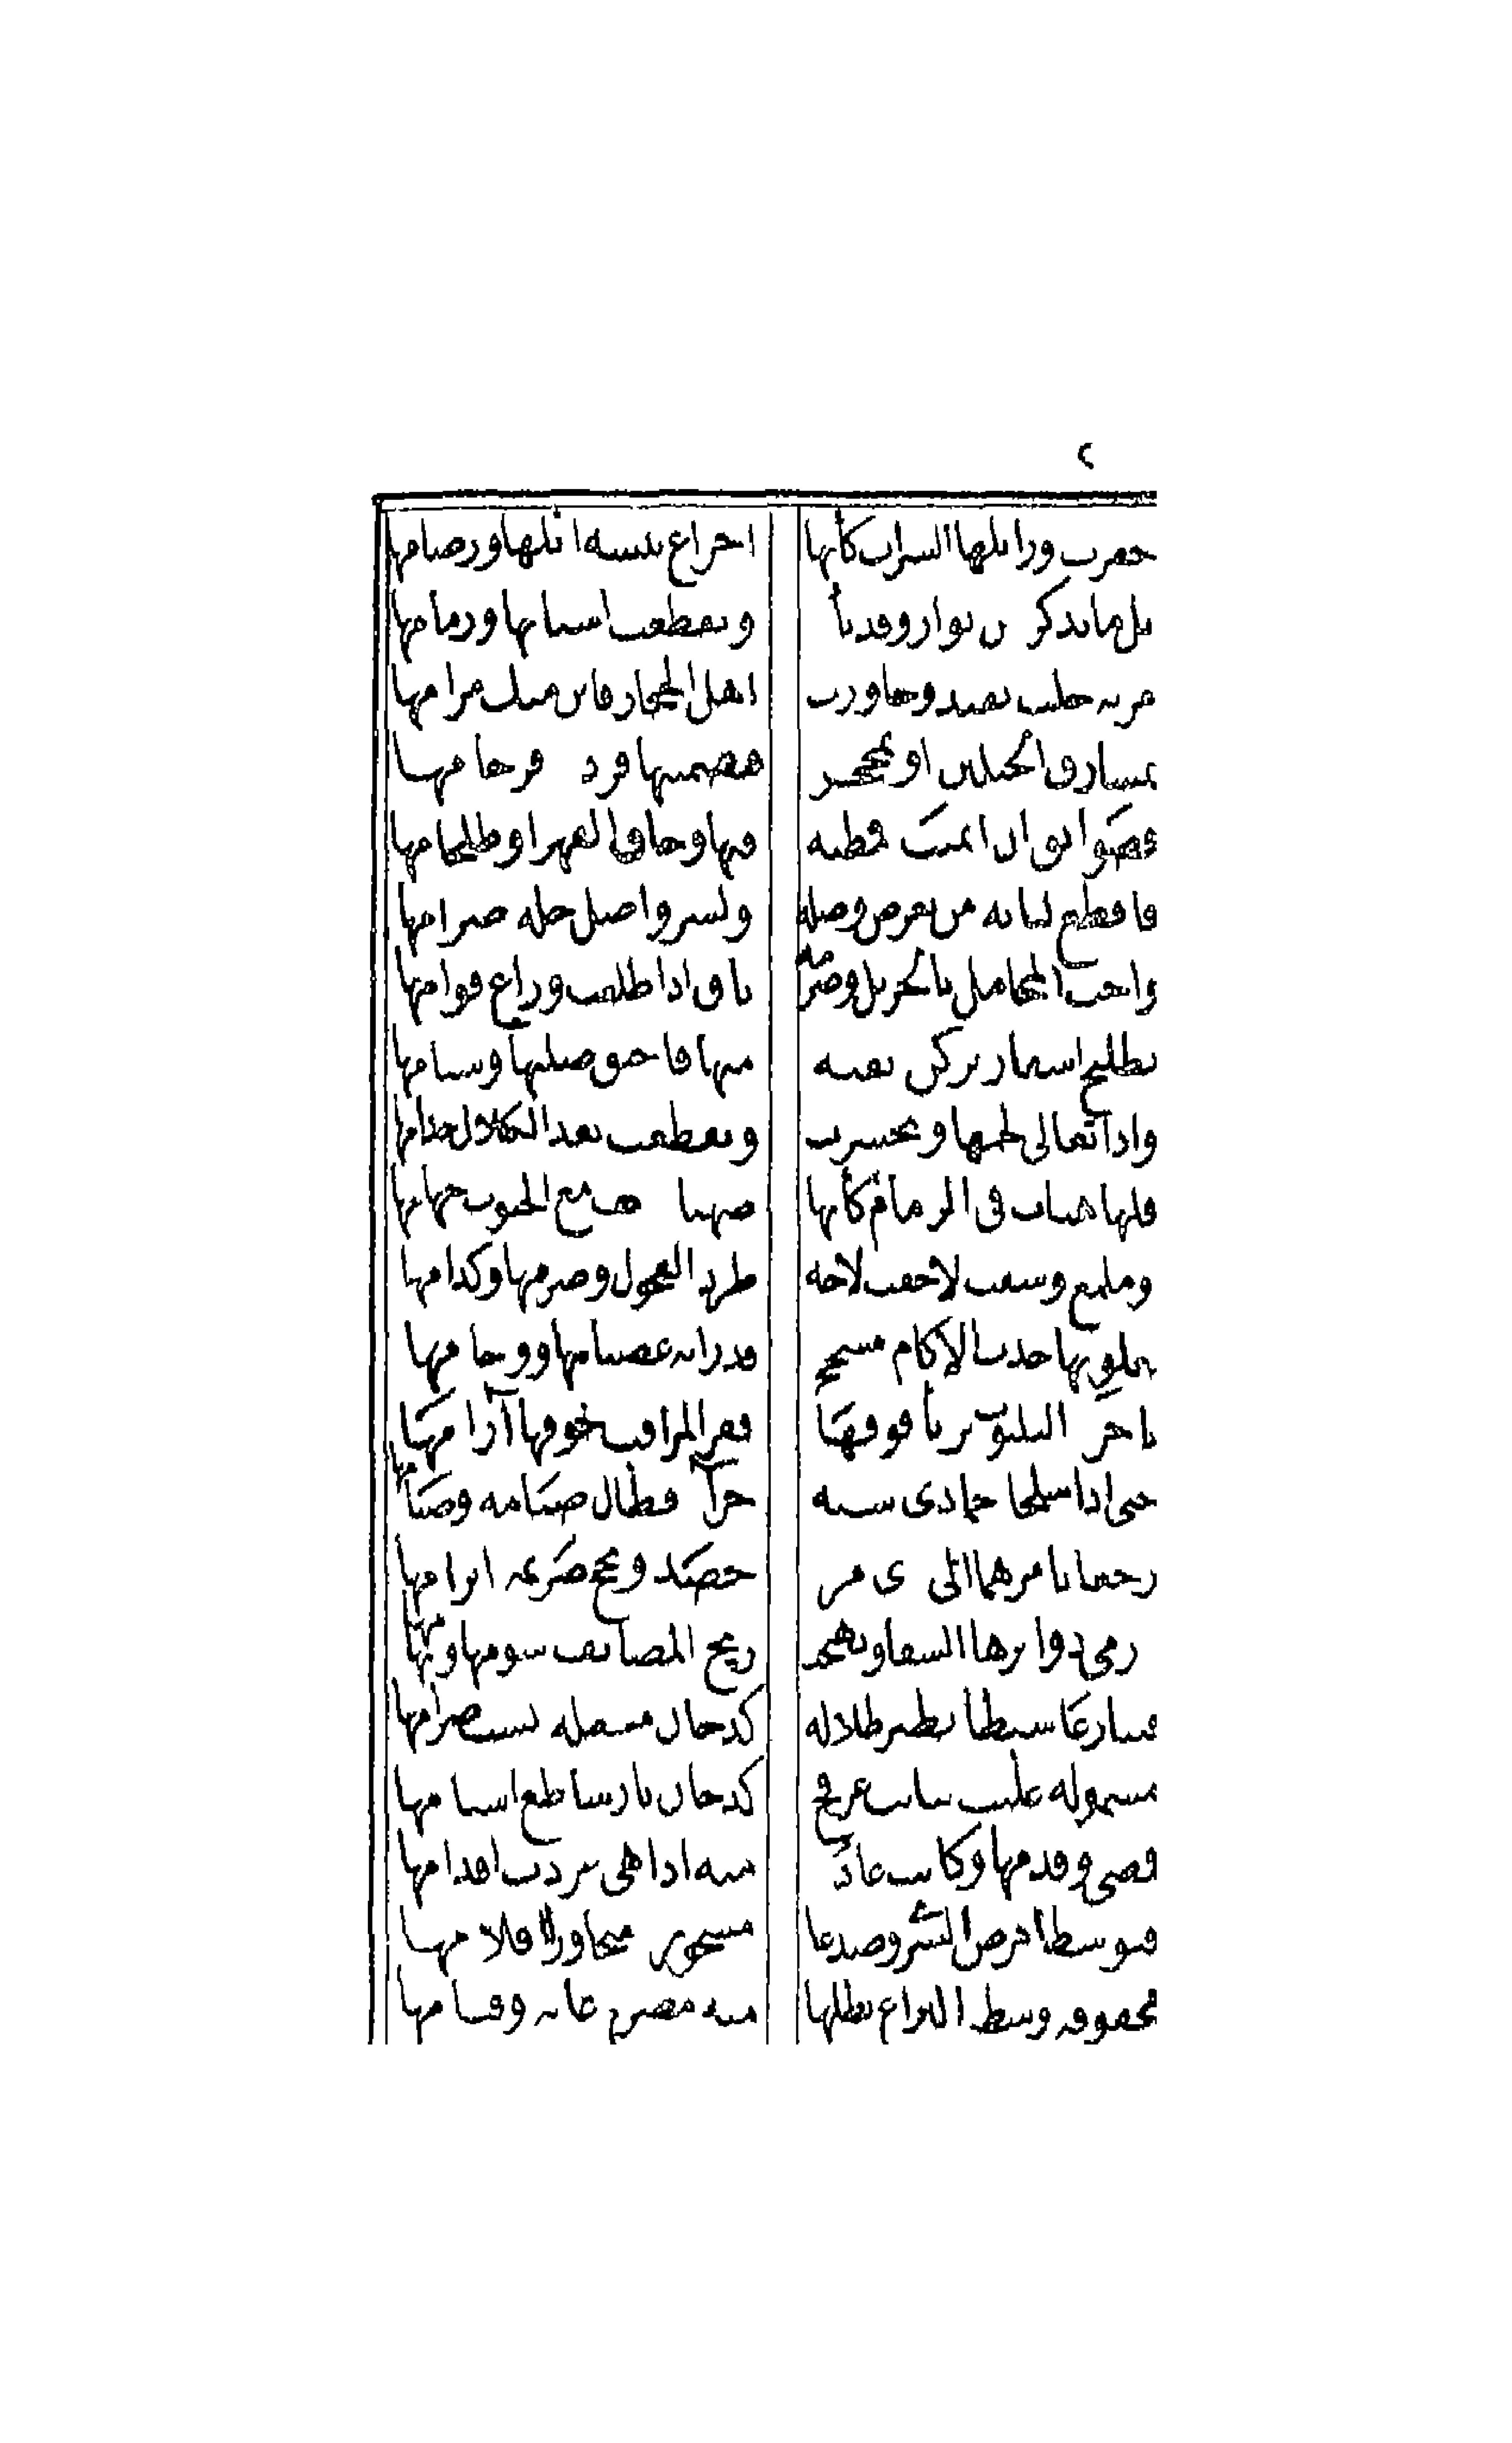 ٢
حفزت وزايلها السراب كأنها اجزاع بيشة اثلها ورضامها
بل ما تذكر من نوار وقد نأت وتقطعت اسبابها ورمامها
مرية حلت بفيد وجاورت اهل الحجاز فاين منك مرامها
بمشارق الجبلين او بمحجر فتضمنتها فردة فرخامها
فصوايق ان ايمنت فمظنة فيها وحاف القهر او طلخامها
فاقطع لبانة من تعرض وصله ولشر واصل خلة صرامها
واحب المجامل بالجزيل وصرمه باق اذا ظلعت وزاغ قوامها
بطليح اسفار تركن بقية منها فاحنق صلبها وسنامها
واذا تغالى لحمها وتحسرت وتقطعت بعد الكلال خدامها
فلها هباب في الزمام كأنها صهبا خف مع الجنوب جهامها
وملمع وسقت لاحقب لاحه طرد الفحول وضربها وكدامها
يعلو بها حدب الاكام مسحج قد رابه عصيانها ووحامها
باحزة الثلبوت يربأ فوقها قفر المراقب خوفها آرامها
حتى اذا سلخا جمادى ستة جزآ فطال صيامه وصيامها
رجعا بامرهما الى ذي مرة حصد ونجح صريمة ابرامها
رمى دوابرها السفا وتهيجت ريح المصايف سومها وسهامها
فتنازعا سبطا يطير ظلاله كدخان مشعلة يشب ضرامها
مشمولة غلثت بنابت عرفج كدخان نار ساطع اسنامها
فمضى وقدمها وكانت عادة منه اذا هي عردت اقدامها
فتوسطا عرض السري وصدعا مسجورة متجاورا قلامها
محفوفة وسط اليراع يظلها منه مصرع غابة وقيامها